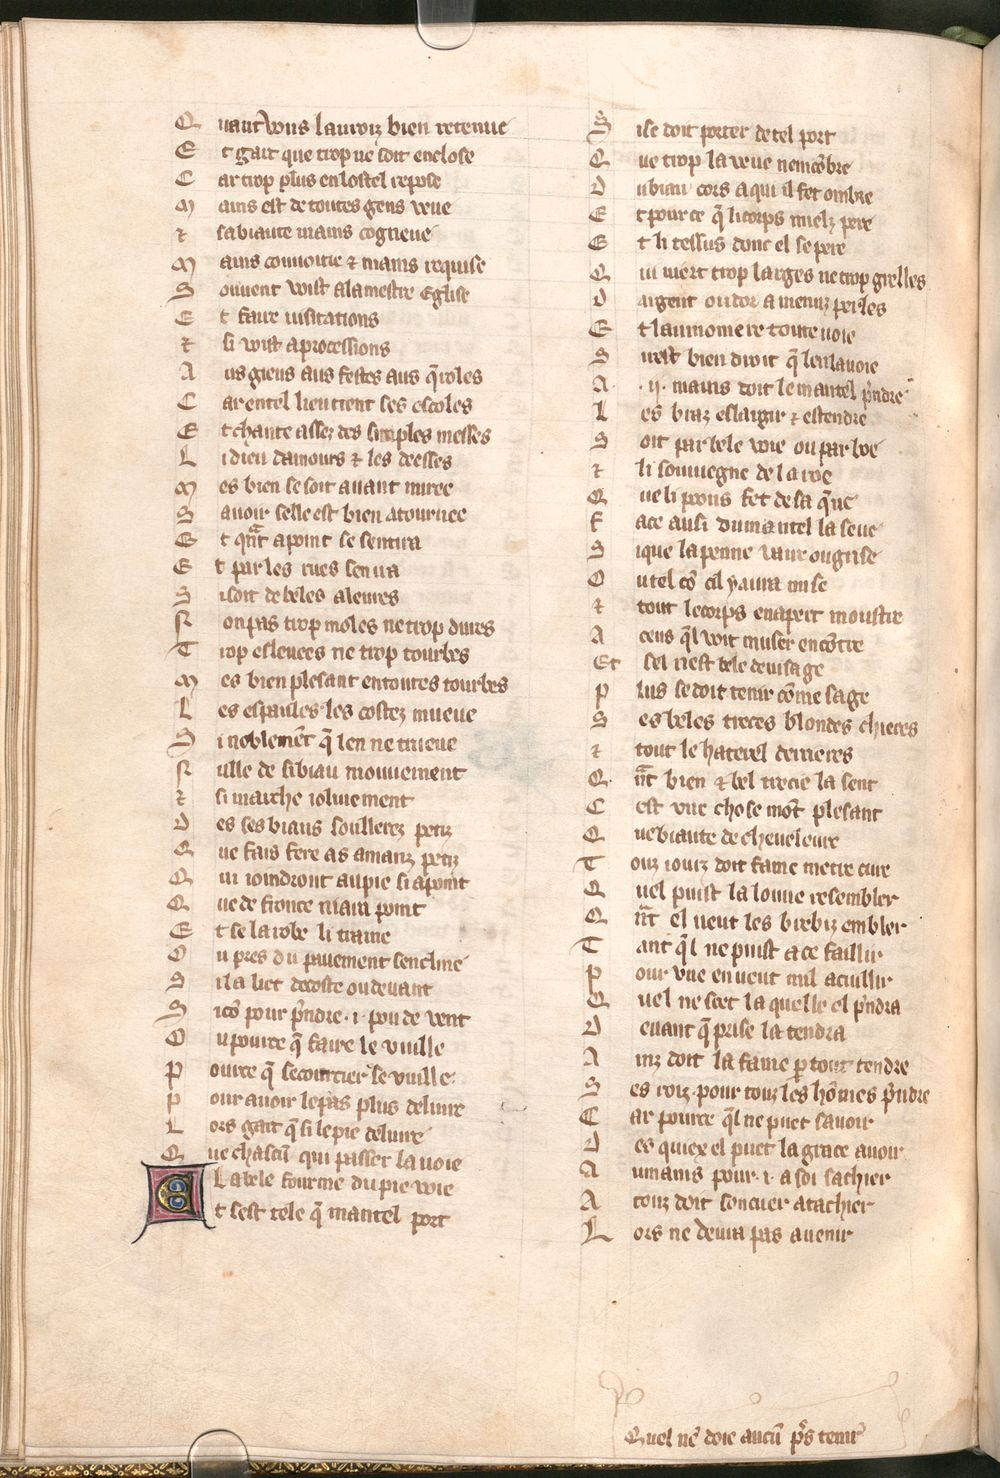 Q uant vous lauroiz bien retenue
E t gart que trop ne soit enclose
C ar trop plus en lostel repose
M ains est de toutes gens veue
⁊ sa biaute mains cogneue
M ains convoitie ⁊ mains requise
S ouvent voist a la mestre eglise
E t faire visitations
⁊ si voist a processions
A us gieus aus festes aus q̄roles
C ar en tel lieu tient ses escoles
E t chante assez des simples messes
L i dieu damours ⁊ les deesses
M es bien se soit avant miree
S avoir selle est bien atournee
E t qn̄t a point se sentira
E t par les rues sen va
S i soit de beles aleures
N on pas trop moles ne trop dures
T rop eslevees ne trop tourbes
M es bien plesant en toutes tourbes
L es espaules les costez mueve
S i noblemēt q̄ len ne trueve
N ulle de si biau mouvement
⁊ si marche iolivement
D es ses biaus soullerez petiz
Q ue fais fere as amanz petiz
Q ui ioindront au pie si a point
Q ue de fronce niara point
E t se la robe li traine
O u pres du pavement sencline
S i la liet decoste ou devant
S i cōe pour p̄ndre .i. pou de vent
O u pource q̄ faire le vuille
P ource q̄ secourcier se vuille
P our avoir le pas plus delivre
L ors gart q̄ si le pie delivre
Q ue chascū qui passer la voie
E La bele fourme du pie voie
t sest tele q̄ mantel port
S i le doit porter de tel port
Q ue trop la veue nencōbre
D u biau cors a qui il fet ombre
E t pour ce q̄ li corps mielz pere
E t li tessus dont el se pere
Q ui niert trop larges ne trop grelles
D argent ou dor a menuz perles
E t laumoniere toute voie
S uest bien droit q̄ len la voie
A .ii. mains doit le mantel p̄ndre
L es braz eslargir ⁊ estendre
S oit par bele voie ou par boe
⁊ li souviegne de la roe
Q ue li paons fet de sa q̄ue
F ace ausi du mantel la seue
S i que la penne vaire ou grise
O u tel cō cil y aura mise
⁊ tout le corps en apert moustre
A ceus q̄l voit muser encōtre
Et sel nest bele de visage
P lus se doit tenir cōme sage
S es beles treces blondes chieres
⁊ tout le haterel derrieres
Q n̄t bien ⁊ bel trecie la sent
C est une chose mōt plesant
Q ue biaute de cheveleure
T ouz iourz doit fame metre cure
Q uel puist la louve resembler
Q n̄t el veut les brebiz embler
T ant q̄l ne puist a ce faillir
P our une en veut mil acuillir
Q uel ne scet la quelle el p̄ndra
D evant q̄ prise la tendra
A inz doit la fame ꝑ tout tendre
S es roiz pour touz les hōmes p̄ndre
C ar pource q̄l ne puet savoir
D es quiex el puet la grace avoir
A u mains pour .i. a soi sachier
A touz doit son cuer atachier
L ors ne devra pas avenir
Quel nē doie aucū p̄s tenir